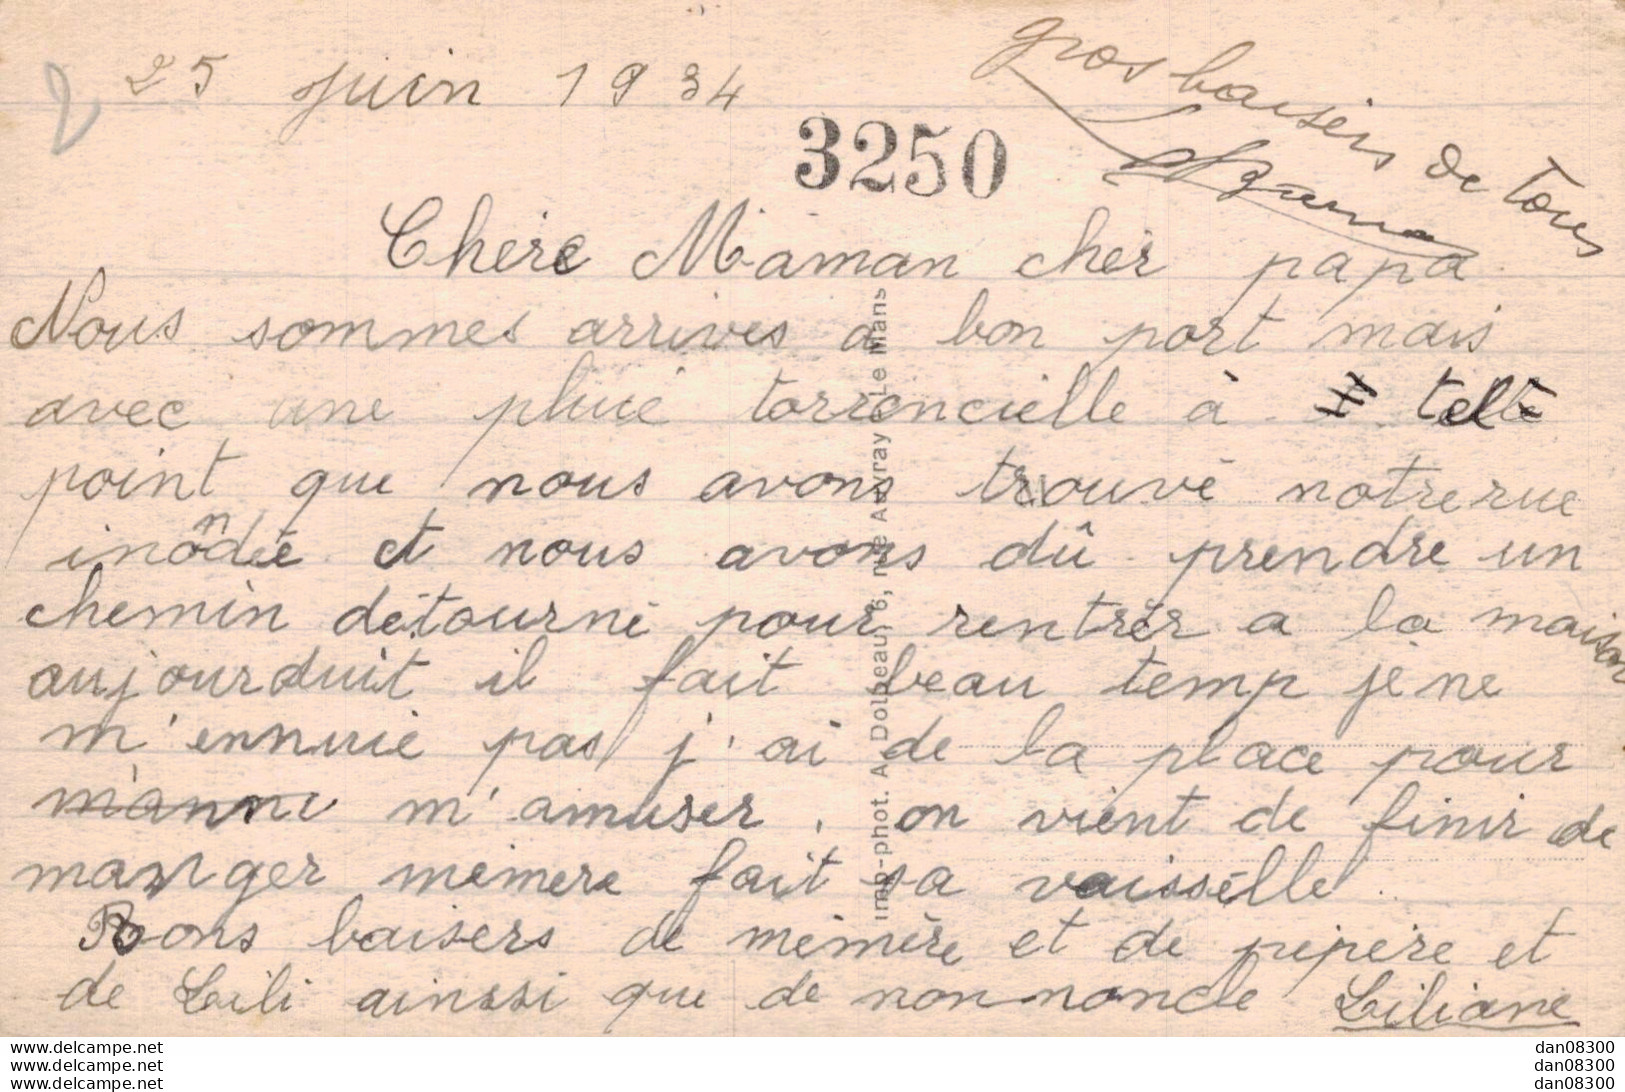 25 juin 1934
gros baisers de tous
3250
Chère Maman cher papa
Nous sommes arrivés a bon port mais
avec une pluie torrencielle à telle
point que nous avons trouvé notre rue
inondée et nous avons dû prendre un
chemin détourné pour rentrer a la maison
aujourduit il fait beau temp je ne
m'ennuie pas j'ai de la place pour
m'amuser. on vient de finir de
manger mémère fait sa vaisselle.
Bons baisers de mémère et de pépère et
de Lili ainssi que de non noncle Liliane
imp-phot. A. Dolbeau, 6, rue Auvray - Le Mans
www.delcampe.net
www.delcampe.net
www.delcampe.net
dan08300
dan08300
dan08300